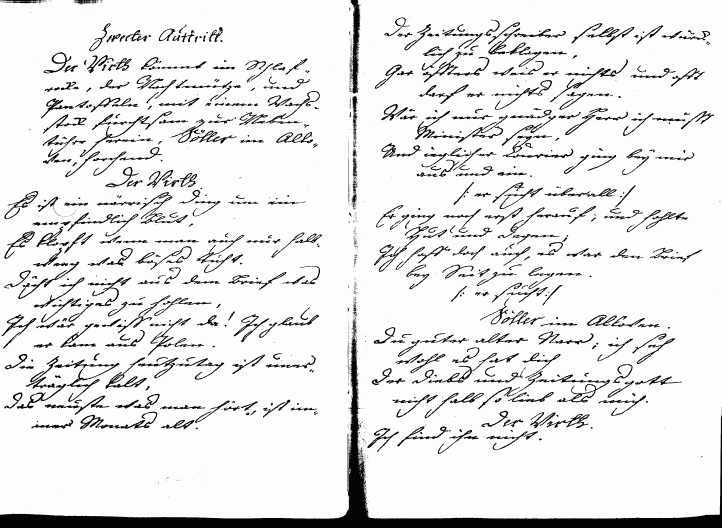 Zweeter Auftritt.
Der Wirth kömmt im Schlaf-
rock, der Nachtmütze, und
Pantoffeln, mit einem Wachs-
stock furchtsam zur Neben-
thüre herein. Söller im Alko-
ven, horchend.
Der Wirth
Es ist ein närrisch Ding um ein
empfindlich Blut,
Es klopft wenn man auch nur halb-
weeg was böses thut.
Dächt ich nicht aus dem Brief was
wichtiges zu hohlen,
Ich wär gewiss nicht da! Ich glaub
er kam aus Polen.
Die Zeitung heutzutag ist uner-
träglich kalt,
Das neuste was man hört, ist im-
mer Monats alt.
Der Zeitungsschreiber selbst ist würk-
lich zu beklagen,
Gar öffters weis er nichts und offt
darf er nichts sagen.
Wär ich nur gnädger Herr ich müsst
Minister seyn,
Und ieglicher Courier ging bey mir
aus und ein.
/: er sucht überall :/
Er ging noch erst herauf, und hohlte
Hut und Degen,
Ich hoff doch auch, es war den Brief
bey Seit zu legen.
/: er sucht :/
Söller im Alkoven.
Du guter alter Narr; ich seh
wohl es hat dich
Der Diebs und Zeitungsgott
nicht halb so lieb als mich.
Der Wirth.
Ich find ihn nicht.